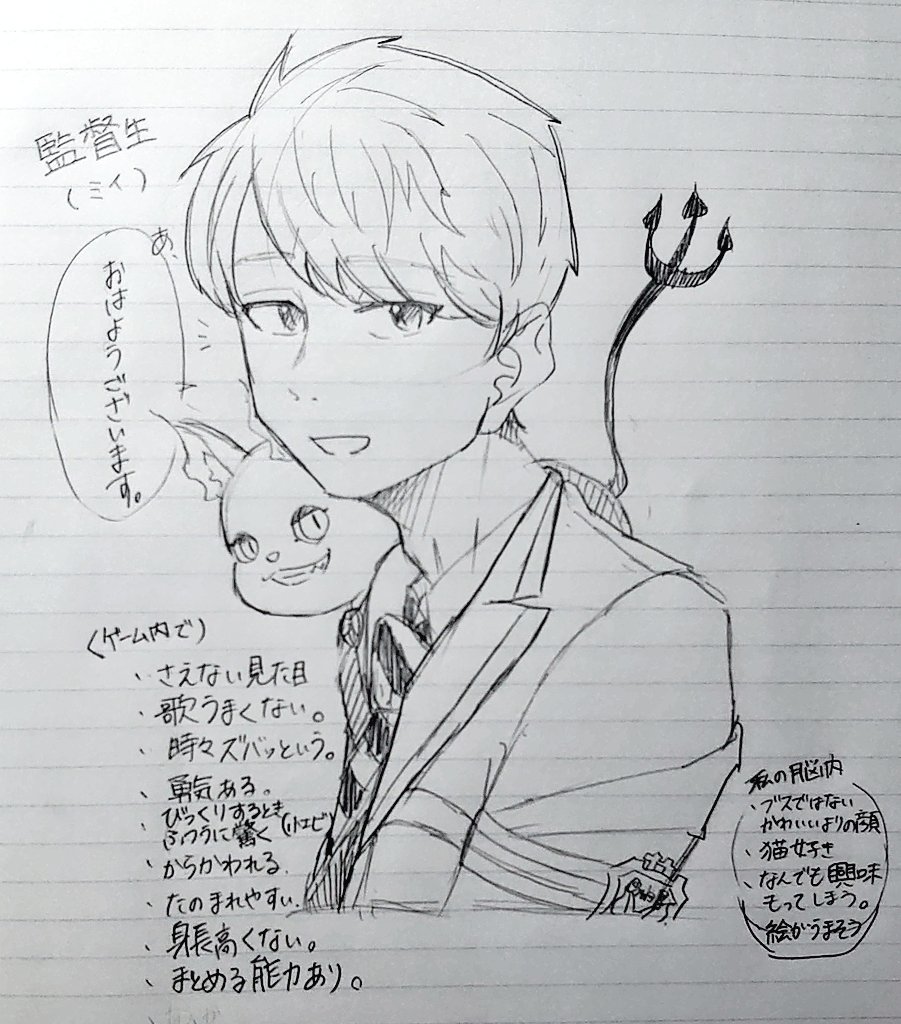 監督生
(ミイ)
あ、
おはようございます。
〈ゲーム内で〉
・さえない見た目
・歌うまくない。
・時々ズバッという。
・勇気ある。
・びっくりするとき
ふつうに驚く(リエビ
・からかわれる.
・たのまれやすい.
・身長高くない。
・まとめる能力あり。
私の脳内
・ブスではない
かわいいよりの顔
・猫好き
・なんでも興味
もってしまう。
・絵がうまそう